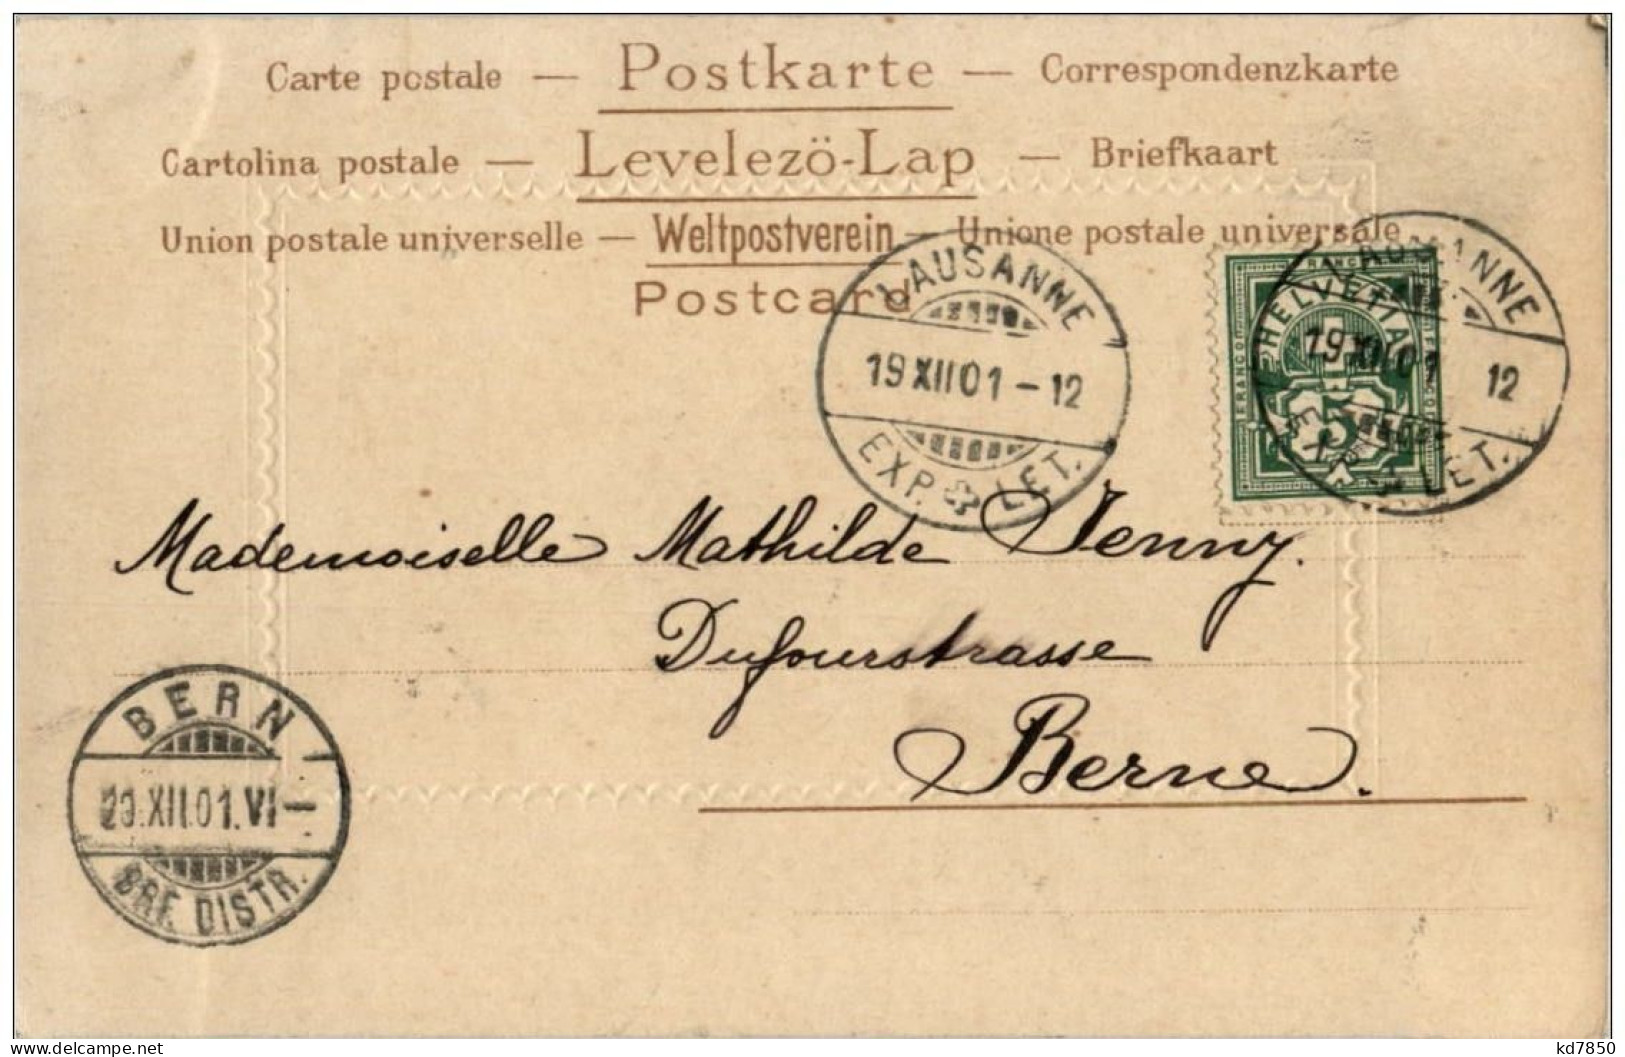 Carte postale — Postkarte — Correspondenzkarte
Cartolina postale — Levelezö-Lap — Briefkaart
Union postale universelle — Weltpostverein — Unione postale universale
Postcard
LAUSANNE
19 XII 01 - 12
EXP. LET.
LAUSANNE
19 XII 01 12
EXP. LET.
FRANCO
HELVETIA
FRANCO
FRANCO
5
Mademoiselle Mathilde Jenny.
Dufourstrasse
Berne.
BERN
20.XII.01.VI-
BRF. DISTR.
www.delcampe.net
kd7850